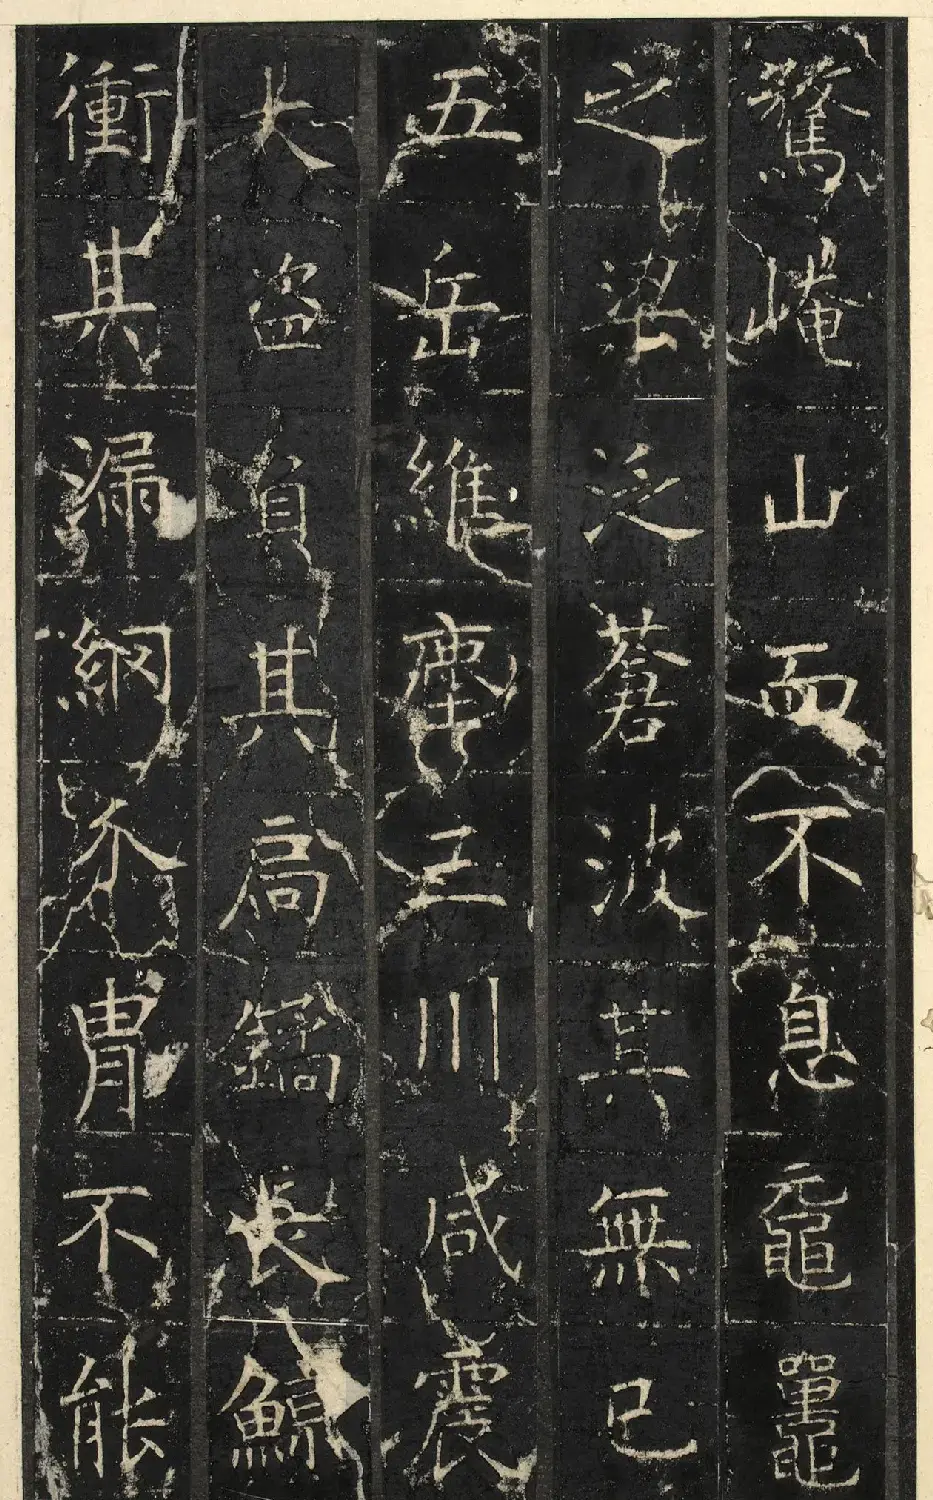 騖崦山而不息黿鼉
之梁泛蒼波其無已
五岳維塵三川咸震
大盜負其扃鐍長鯨
衝其漏網介冑不能